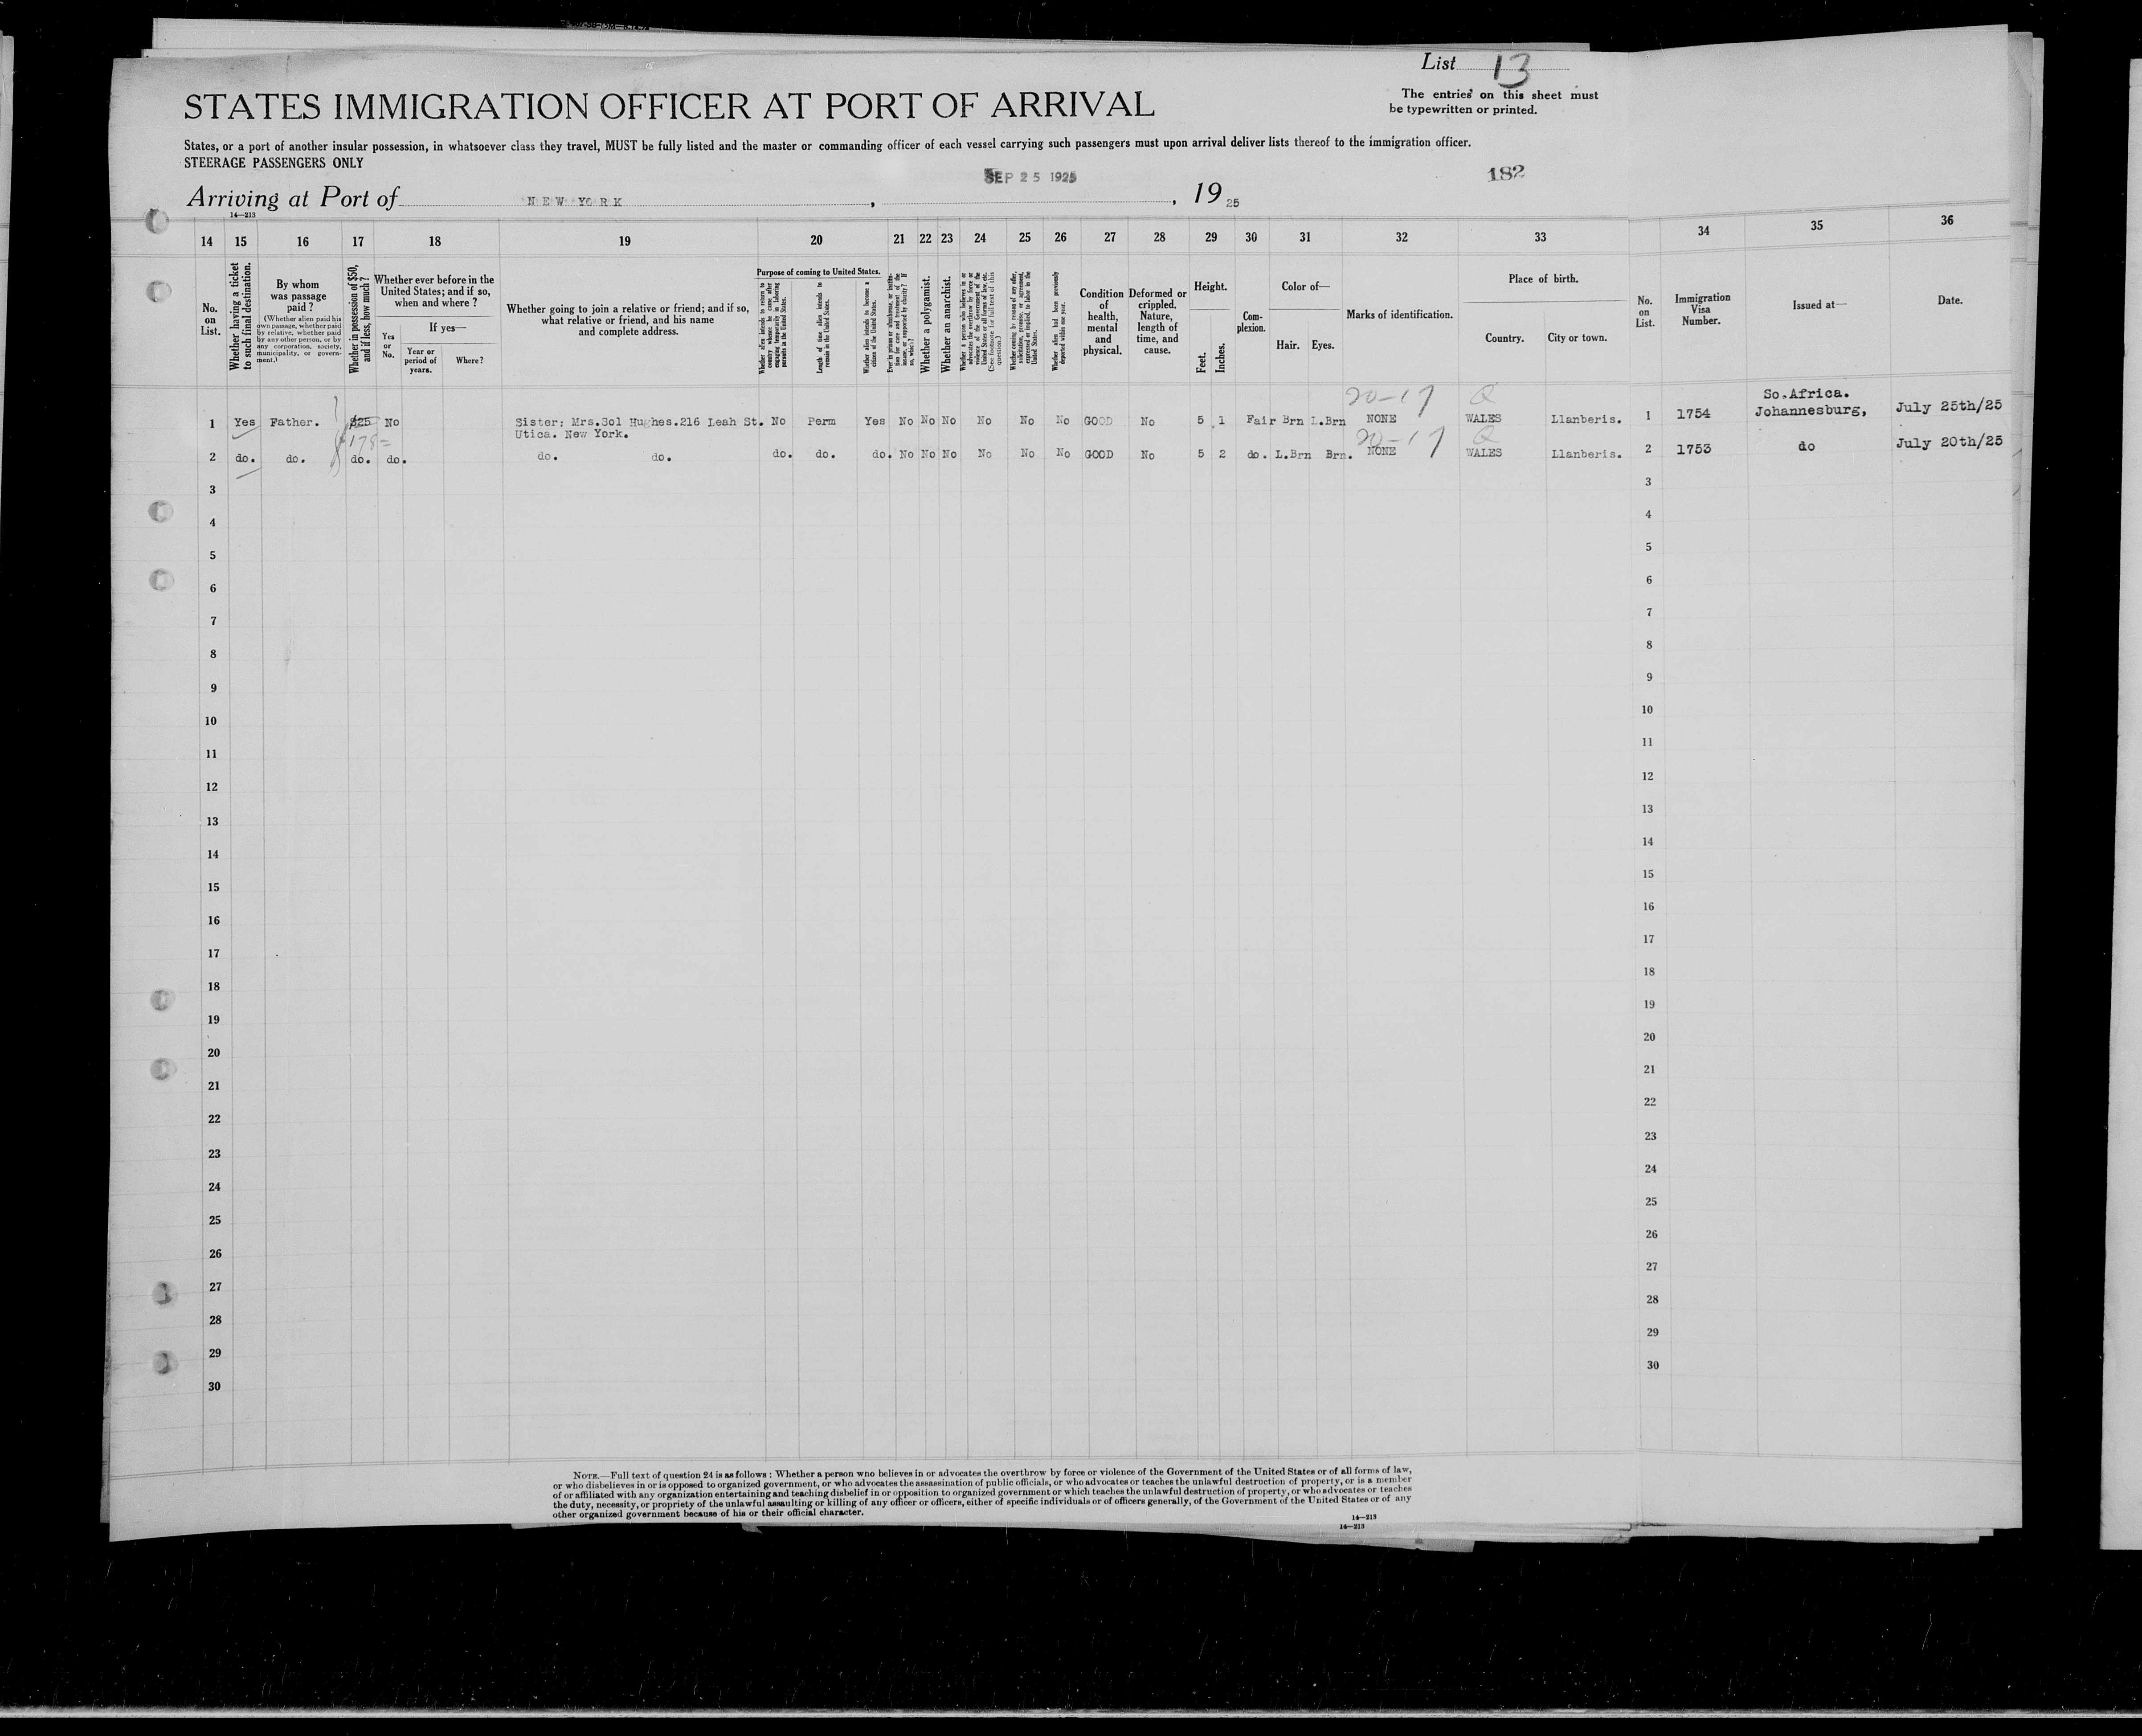 List 13
The entries on this sheet must
be typewritten or printed.
STATES IMMIGRATION OFFICER AT PORT OF ARRIVAL
States, or a port of another insular possession, in whatsoever class they travel, MUST be fully listed and the master or commanding officer of each vessel carrying such passengers must upon arrival deliver lists thereof to the immigration officer.
STEERAGE PASSENGERS ONLY
SEP 25 1925
182
Arriving at Port of NEW YORK, , 19 25
14—213
14 15 16 17 18 19 20 21 22 23 24 25 26 27 28 29 30 31 32 33 34 35 36
No. on List.
Whether having a ticket to such final destination.
By whom was passage paid?
(Whether alien paid his own passage, whether paid by relative, whether paid by any other person, or by any corporation, society, municipality, or government.)
Whether in possession of $50, and if less, how much?
Whether ever before in the United States; and if so, when and where?
Yes or No.
If yes—
Year or period of years.
Where?
Whether going to join a relative or friend; and if so, what relative or friend, and his name and complete address.
Purpose of coming to United States.
Whether alien intends to return to country whence he came after engaging temporarily in laboring pursuits in the United States.
Length of time alien intends to remain in the United States.
Whether alien intends to become a citizen of the United States.
Ever in prison or almshouse, or institution for care and treatment of the insane, or supported by charity? If so, which?
Whether a polygamist.
Whether an anarchist.
Whether a person who believes in or advocates the overthrow by force or violence of the Government of the United States or all forms of law, etc. (See footnote for full text of this question.)
Whether coming by reason of any offer, solicitation, promise, or agreement, expressed or implied, to labor in the United States.
Whether alien had been previously deported within one year.
Condition of health, mental and physical.
Deformed or crippled. Nature, length of time, and cause.
Height.
Feet.
Inches.
Complexion.
Color of—
Hair.
Eyes.
Marks of identification.
Place of birth.
Country.
City or town.
No. on List.
Immigration Visa Number.
Issued at—
Date.
20-17 Q
So.Africa.
1 Yes Father. $25 No Sister; Mrs.Sol Hughes.216 Leah St. No Perm Yes No No No No No No GOOD No 5 1 Fair Brn L.Brn NONE WALES Llanberis. 1 1754 Johannesburg, July 25th/25
Utica. New York.
$178= 20-17 Q
2 do. do. do. do. do. do. do. do. do. No No No No No No GOOD No 5 2 do. L.Brn Brn. NONE WALES Llanberis. 2 1753 do July 20th/25
3 3
4 4
5 5
6 6
7 7
8 8
9 9
10 10
11 11
12 12
13 13
14 14
15 15
16 16
17 17
18 18
19 19
20 20
21 21
22 22
23 23
24 24
25 25
26 26
27 27
28 28
29 29
30 30
NOTE.—Full text of question 24 is as follows: Whether a person who believes in or advocates the overthrow by force or violence of the Government of the United States or of all forms of law,
or who disbelieves in or is opposed to organized government, or who advocates the assassination of public officials, or who advocates or teaches the unlawful destruction of property, or is a member
of or affiliated with any organization entertaining and teaching disbelief in or opposition to organized government or which teaches the unlawful destruction of property, or who advocates or teaches
the duty, necessity, or propriety of the unlawful assaulting or killing of any officer or officers, either of specific individuals or of officers generally, of the Government of the United States or of any
other organized government because of his or their official character.
14—213
14—213